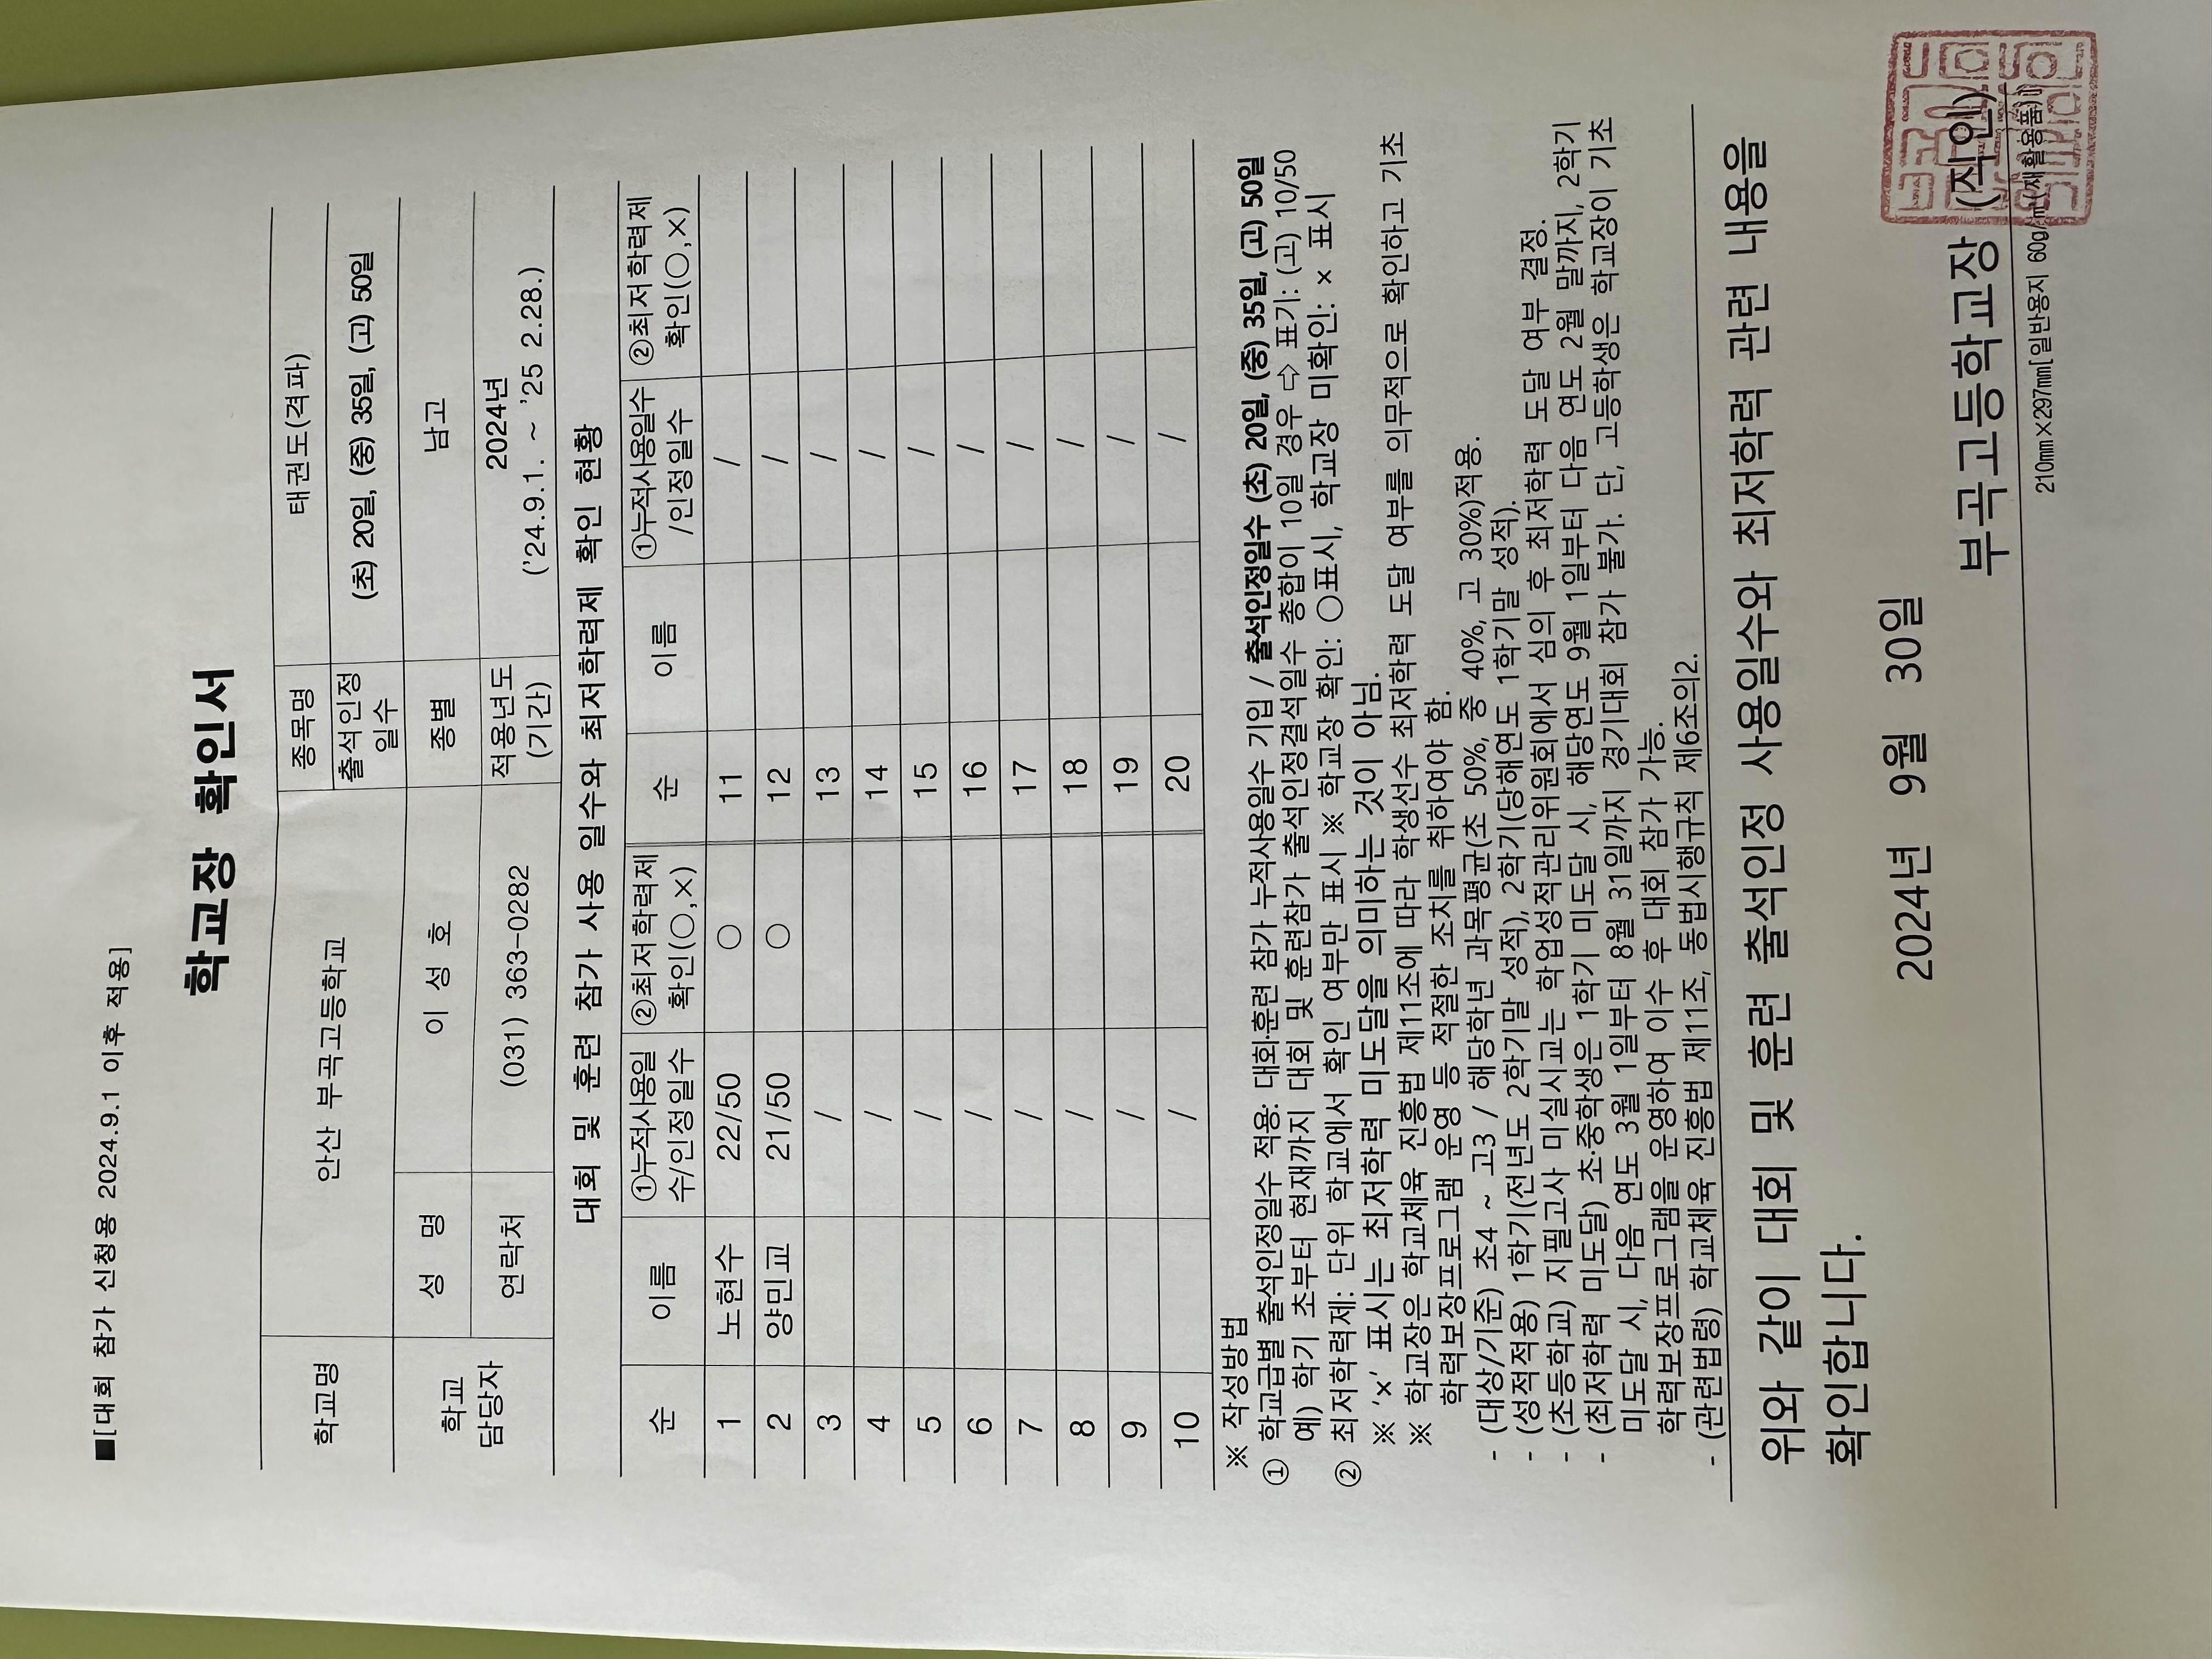 ■[대회 참가 신청용 2024.9.1 이후 적용]
학교장 확인서
학교명 안산 부곡고등학교 종목명 태권도(격파)
출석인정 일수 (초) 20일, (중) 35일, (고) 50일
학교 담당자 성 명 이 성 호 종별 남고
연락처 (031) 363-0282 적용년도 (기간) 2024년 ('24.9.1. ~ '25 2.28.)
대회 및 훈련 참가 사용 일수와 최저학력제 확인 현황
순 이름 ①누적사용일수/인정일수 ②최저학력제 확인(○,×) 순 이름 ①누적사용일수/인정일수 ②최저학력제 확인(○,×)
1 노현수 22/50 ○ 11 /
2 양민교 21/50 ○ 12 /
3 / 13 /
4 / 14 /
5 / 15 /
6 / 16 /
7 / 17 /
8 / 18 /
9 / 19 /
10 / 20 /
※ 작성방법
① 학교급별 출석인정일수 적용: 대회·훈련 참가 누적사용일수 기입 / 출석인정일수 (초) 20일, (중) 35일, (고) 50일
예) 학기 초부터 현재까지 대회 및 훈련참가 출석인정결석일수 총합이 10일 경우 ⇨ 표기: (고) 10/50
② 최저학력제: 단위 학교에서 확인 여부만 표시 ※ 학교장 확인: ○표시, 학교장 미확인: × 표시
※ '×' 표시는 최저학력 미도달을 의미하는 것이 아님.
※ 학교장은 학교체육 진흥법 제11조에 따라 학생선수 최저학력 도달 여부를 의무적으로 확인하고 기초
학력보장프로그램 운영 등 적절한 조치를 취하여야 함.
- (대상/기준) 초4 ~ 고3 / 해당학년 과목평균(초 50%, 중 40%, 고 30%)적용.
- (성적적용) 1학기(전년도 2학기말 성적), 2학기(당해연도 1학기말 성적).
- (초등학교) 지필고사 미실시교는 학업성적관리위원회에서 심의 후 최저학력 도달 여부 결정.
- (최저학력 미도달) 초·중학생은 1학기 미도달 시, 해당연도 9월 1일부터 다음 연도 2월 말까지, 2학기
미도달 시, 다음 연도 3월 1일부터 8월 31일까지 경기대회 참가 불가. 단, 고등학생은 학교장이 기초
학력보장프로그램을 운영하여 이수 후 대회 참가 가능.
- (관련법령) 학교체육 진흥법 제11조, 동법시행규칙 제6조의2.
위와 같이 대회 및 훈련 출석인정 사용일수와 최저학력 관련 내용을
확인합니다.
2024년 9월 30일
부곡고등학교장 (직인)
210㎜×297㎜[일반용지 60g/㎡(재활용품)]